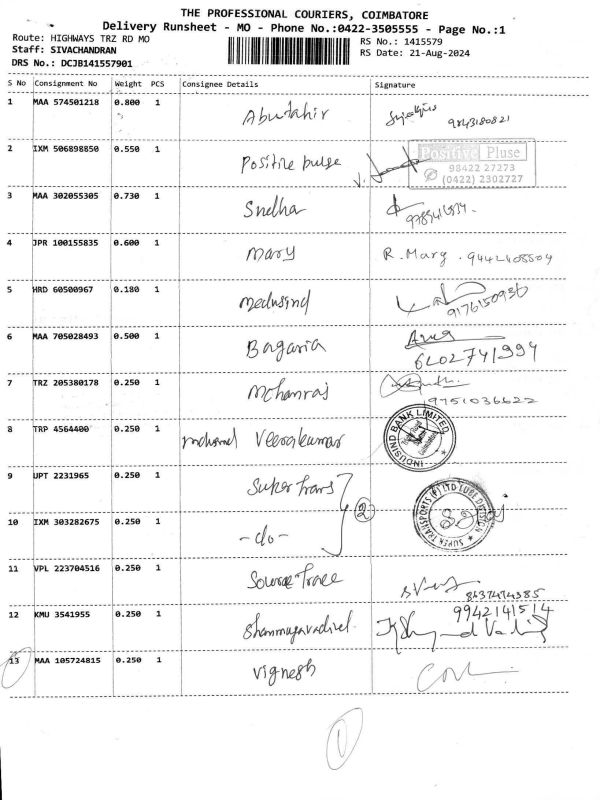 THE PROFESSIONAL COURIERS, COIMBATORE
Delivery Runsheet - MO - Phone No.:0422-3505555 - Page No.:1
Route: HIGHWAYS TRZ RD MO
Staff: SIVACHANDRAN
DRS No.: DCJB141557901
RS No.: 1415579
RS Date: 21-Aug-2024
S No Consignment No Weight PCS Consignee Details Signature
1 MAA 574501218 0.800 1 Abutahir 9843180821
2 IXM 506898850 0.550 1 Positive pulse
Positive Pluse
98422 27273
(0422) 2302727
3 MAA 302055305 0.730 1 Snelha
4 JPR 100155835 0.600 1 Mary R. Mary . 9442408504
5 HRD 60500967 0.180 1 Medusind 9176150936
6 MAA 705028493 0.500 1 Bagaria
6402741994
7 TRZ 205380178 0.250 1 Mohanraj
9751036622
8 TRP 4564400 0.250 1 Veerakumar
INDUSIND BANK LIMITED
9 UPT 2231965 0.250 1 Super Trans
2
SUPER TRANSPORTS (P) LTD LUBE DIVISION
10 IXM 303282675 0.250 1 -do-
11 VPL 223704516 0.250 1 Source Trace
8437474385
12 KMU 3541955 0.250 1 Shanmugavadivel
9942141514
13 MAA 105724815 0.250 1 Vignesh
1